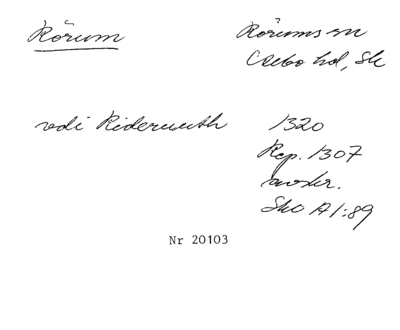 Rörum
Rörums sn
hd, Sk
vedi Riderwuth
1320
Rep. 1307
avskr.
SkO A1:89
Nr 20103